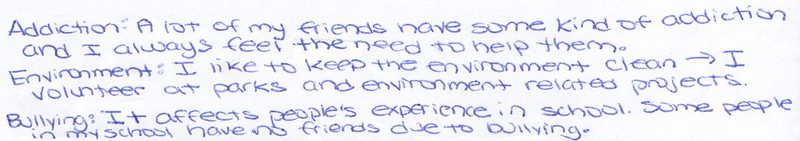 Addiction: A lot of my friends have some kind of addiction
and I always feel the need to help them.
Environment: I like to keep the environment clean → I
volunteer at parks and environment related projects.
Bullying: It affects people's experience in school. Some people
in my school have no friends due to bullying.